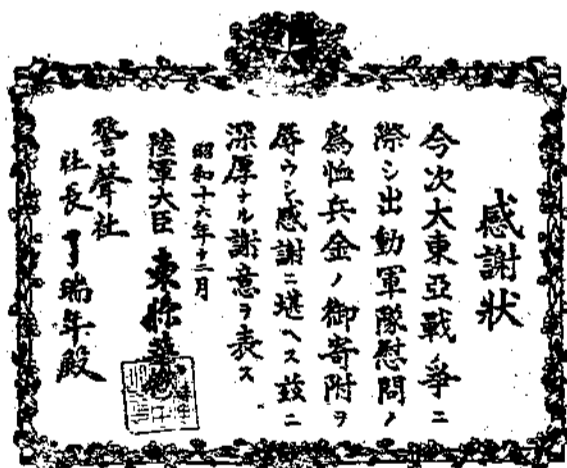 感謝狀
今次大東亞戰爭ニ
際シ出動軍隊慰問ノ
爲恤兵金ノ御寄附ヲ
辱ウシ感謝ニ堪ヘス茲ニ
深厚ナル謝意ヲ表ス
昭和十六年十二月
陸軍大臣 東條英機
警聲社
社長 丁瑞年殿